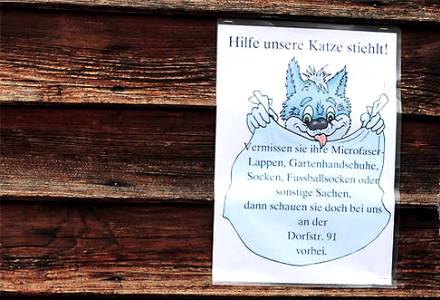 Hilfe unsere Katze stiehlt!
Vermissen sie ihre Microfaser-
Lappen, Gartenhandschuhe,
Socken, Fussballsocken oder
sonstige Sachen,
dann schauen sie doch bei uns
an der
Dorfstr. 91
vorbei.